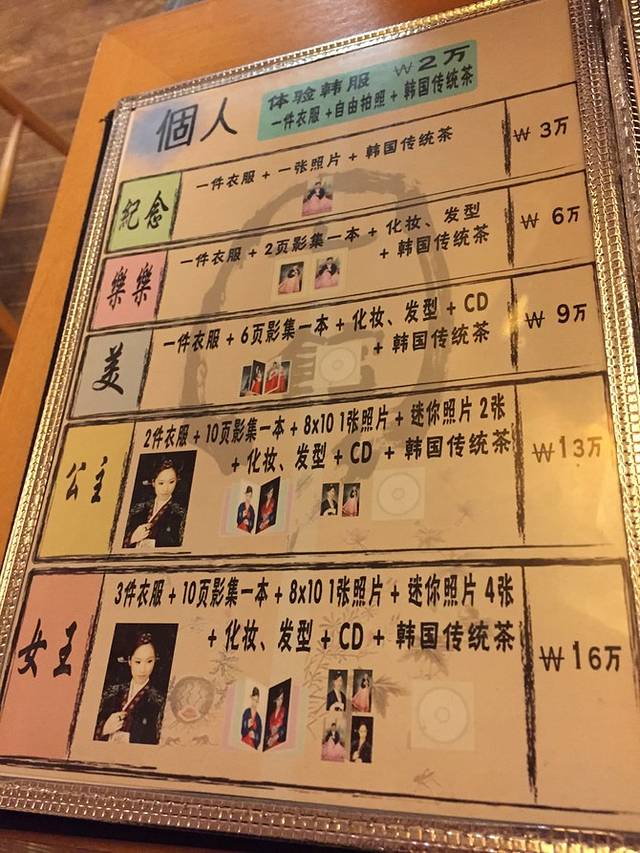 個人
体验韩服 ₩2万
一件衣服 + 自由拍照 + 韩国传统茶
紀念
一件衣服 + 一张照片 + 韩国传统茶
₩ 3万
樂樂
一件衣服 + 2页影集一本 + 化妆、发型
+ 韩国传统茶
₩ 6万
美
一件衣服 + 6页影集一本 + 化妆、发型 + CD
+ 韩国传统茶
₩ 9万
公主
2件衣服 + 10页影集一本 + 8x10 1张照片 + 迷你照片 2张
+ 化妆、发型 + CD + 韩国传统茶
₩13万
女王
3件衣服 + 10页影集一本 + 8x10 1张照片 + 迷你照片 4张
+ 化妆、发型 + CD + 韩国传统茶
₩16万